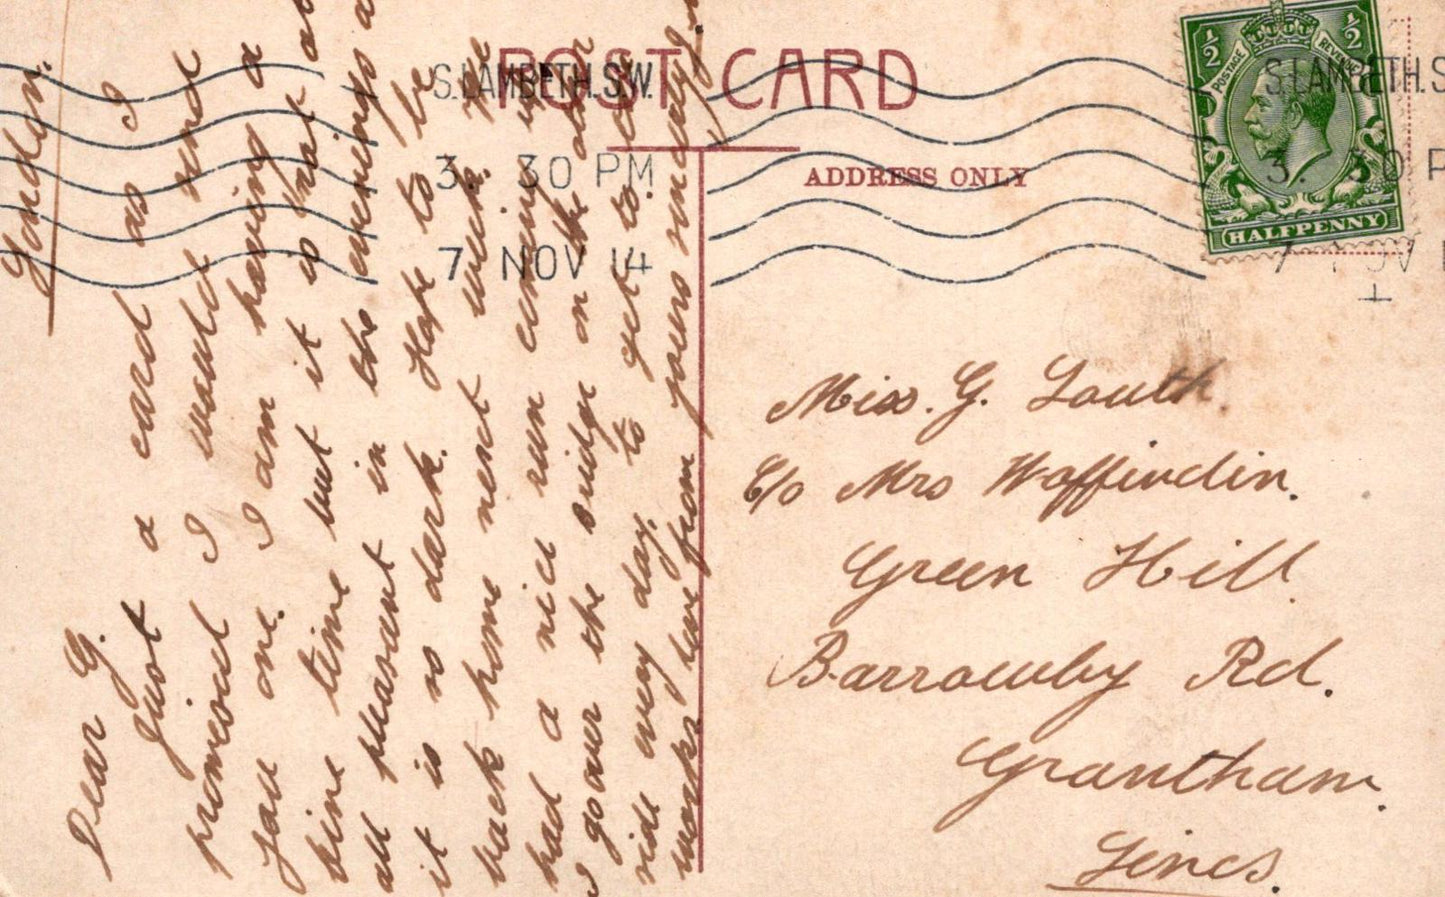 POST CARD
S. LAMBETH. S.W.
3. 30 PM
7 NOV 14
ADDRESS ONLY
½ ½
POSTAGE REVENUE
HALFPENNY
S. LAMBETH. S
3. 30 P
7 NOV 1
London.
Dear G.
Just a card as I
promised I would send
you one. I am having a
fine time but it is not at
all pleasant in the evenings a
it is so dark. Hope to be
back home next week. We
had a nice run coming
I go over the bridge on the
ride every day to get to
works love from yours sincerely.
Miss. G. South.
C/o Mrs Waffindin.
Green Hill.
Barrowby Rd.
Grantham.
Lincs.